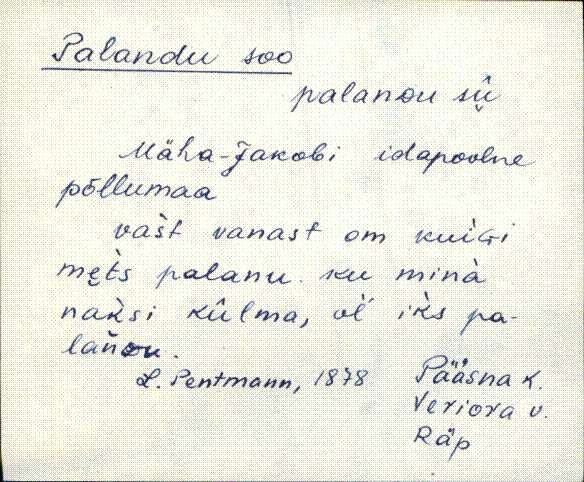 Palandu soo
palandu sū
Mäha-Jakobi idapoolne
põllumaa
vašt vanast om kuiɢi
mẹts palanu. ku minà
naksi kûlma, oĺ iks pa-
lanᴅu.
L. Pentmann, 1878 Pääsna k.
Veriora v.
Räp